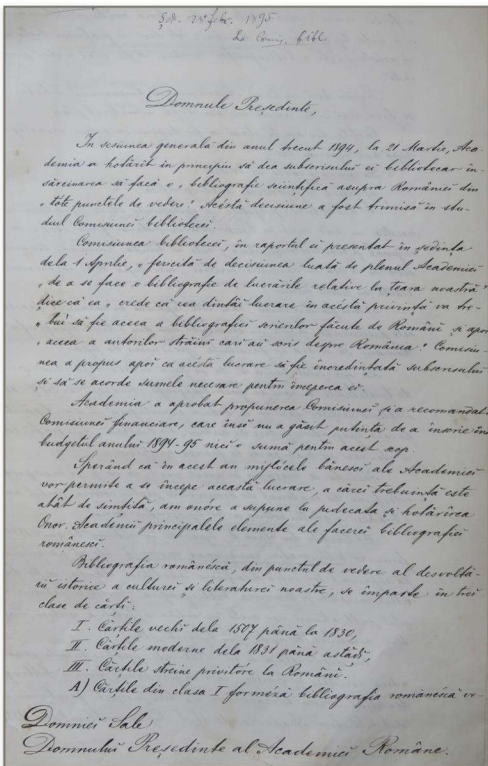 Șed. 25 febr. 1895
La Comis. bibl.
Domnule Președinte,
In sesiunea generală din anul trecut 1894, la 21 Martie, Aca-
demia a hotărît in principiu să dea subscrisului ei bibliotecar in-
sărcinarea să facă o „bibliografie sciintifică asupra României din
„tóte punctele de vedere”. Acéstă decisiune a fost trimisă in stu-
diul Comisiunei bibliotecei.
Comisiunea bibliotecei, in raportul ei presentat in ședința
dela 1 Aprilie, „fericită de decisiunea luată de plenul Academiei
„de a se face o bibliografie de lucrările relative la țeara noastră”
dice că ea „crede că cea dintâi lucrare in acéstă privință va tre-
„bui să fie aceea a bibliografiei scrierilor făcute de Români și apoi
„aceea a autorilor străini cari au scris despre România”. Comisiu-
nea a propus apoi ca acéstă lucrare să fie incredințată subscrisului
și să se acorde sumele necesare pentru inceperea ei.
Academia a aprobat propunerea Comisiunei și a recomandat-o
Comisiunei financiare, care însĕ nu a găsit putința de a inscrie in
budgetul anului 1894-95 nici o sumă pentru acest scop.
Sperând că in acest an mijlócele bănesci ale Academiei
vor permite a se incepe această lucrare, a cărei trebuință este
atât de simțită, am onóre a supune la judecata și hotărîrea
Onor. Academii principalele elemente ale facerei bibliografiei
românesci.
Bibliografia românéscă, din punctul de vedere al desvoltă-
rii istorice a culturei și literaturei noastre, se imparte in trei
clase de cărți:
I. Cărțile vechi dela 1507 până la 1830,
II. Cărțile moderne dela 1831 până astăḑi,
III. Cărțile streine privitóre la Români.
A) Cărțile din clasa I forméză bibliografia românéscă ve-
Domniei Sale
Domnului Președinte al Academiei Române.